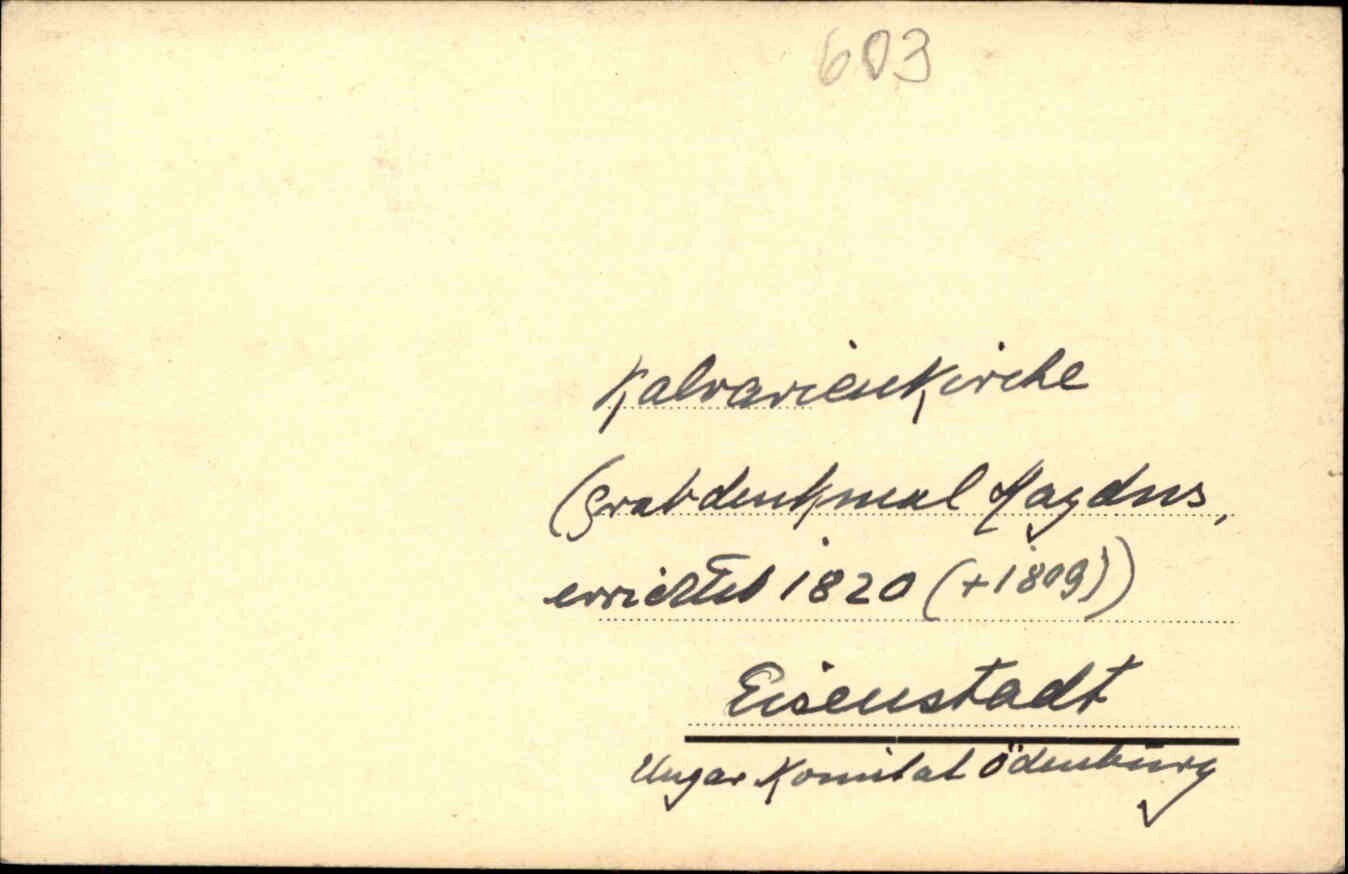 603
Kalvarienkirche
(Grabdenkmal Haydns,
errichtet 1820 (+1809))
Eisenstadt
Ungar Komitat Ödenburg